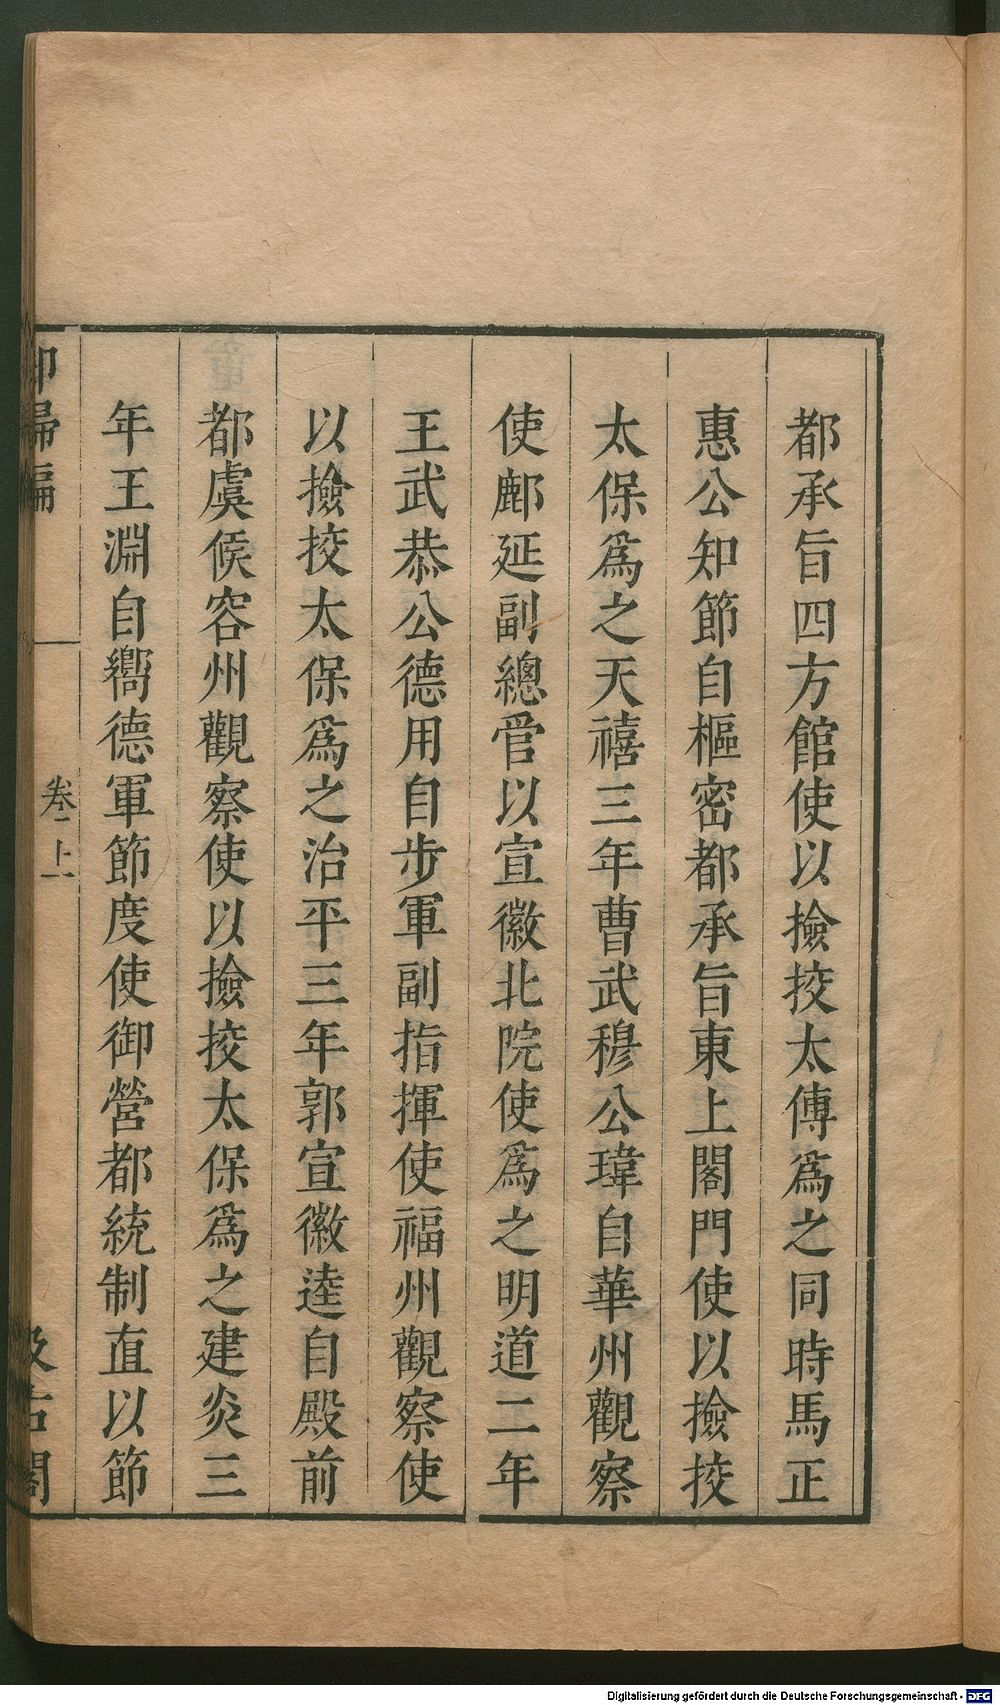 都承旨四方館使以撿挍太傅爲之同時馬正
惠公知節自樞密都承旨東上閤門使以撿挍
太保爲之天禧三年曹武穆公瑋自華州觀察
使鄜延副總管以宣徽北院使爲之明道二年
王武恭公德用自步軍副指揮使福州觀察使
以撿挍太保爲之治平三年郭宣徽逵自殿前
都虞候容州觀察使以撿挍太保爲之建炎三
年王淵自嚮德軍節度使御營都統制直以節
卻掃編 卷上 汲古閣
Digitalisierung gefördert durch die Deutsche Forschungsgemeinschaft - DFG